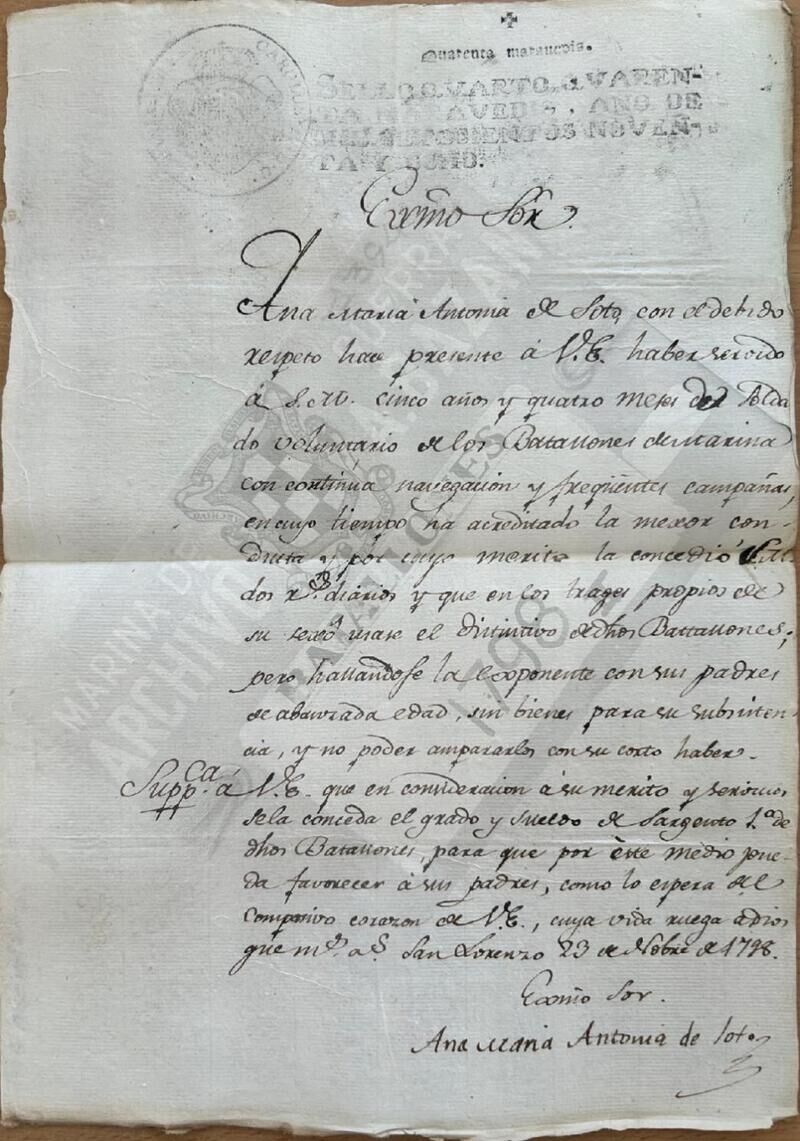 Quarenta maravedis.
SELLO QVARTO, QVAREN-
TA MARAVEDIS, AÑO DE
MIL SETECIENTOS NOVEN-
TA Y OCHO.
Exmo Sor.
Ana Maria Antonia de Soto, con el debido
respeto hace presente á V.E. haber servido
á S.M. cinco años y quatro meses de Solda
do voluntario de los Batallones de Marina
con continua navegacion y freqüentes campañas,
en cuyo tiempo ha acreditado la mexor con-
ducta y por cuyo merito la concedió S.M.
dos rs. diarios y que en los trages propios de
su sexô usase el distintivo de dhos Battallones;
pero hallandose la Exponente con sus padres
de abanzada edad, sin bienes para su subsisten
cia, y no poder ampararlos con su corto haber.
Suppca. á V.E. que en consideracion á su merito y servicios
se la conceda el grado y sueldo de Sargento 1.º de
dhos Batallones, para que por este medio pue-
da favorecer á sus padres, como lo espera del
compasivo corazon de V.E., cuya vida ruega a Dios
gue ms. as. San Lorenzo 23 de Nobre de 1798.
Exmo Sor.
Ana Maria Antonia de Soto
MARINA DE
ARCHIVO
BATALLONES
1798